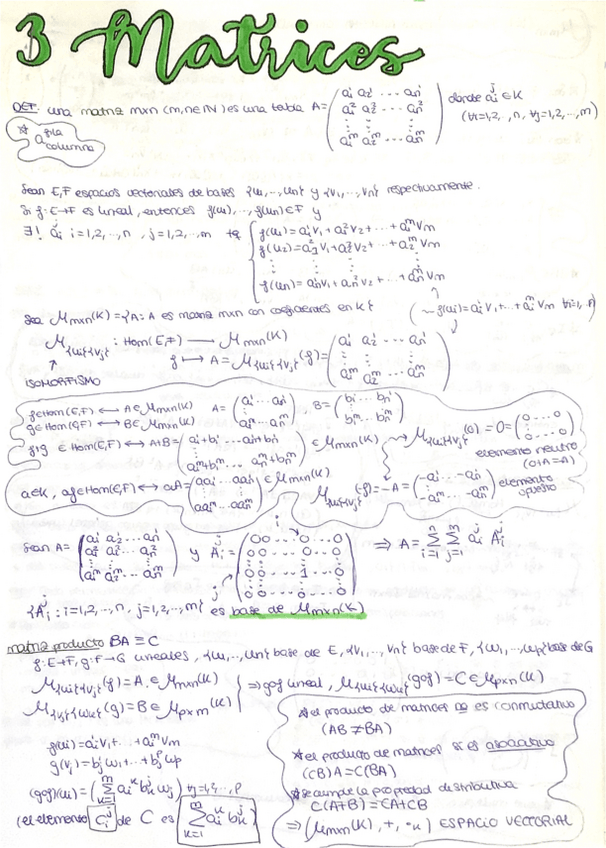 3 Matrices
DEF. una matriz mxn (m,n∈ℕ) es una tabla A = (a₁¹ a₂¹ ... aₙ¹ donde aᵢʲ ∈ K
a₁² a₂² ... aₙ² (∀i=1,2,..,n, ∀j=1,2,...,m)
⋮ ⋮ ⋮
a₁ᵐ a₂ᵐ ... aₙᵐ)
* a fila
columna
Sean E,F espacios vectoriales de bases {u₁,...,uₙ} y {v₁,...,vₙ} respectivamente.
Si f:E→F es lineal, entonces f(u₁),...,f(uₙ)∈F y
∃! aᵢʲ i=1,2,...,n , j=1,2,...,m tq { f(u₁) = a₁¹v₁ + a₁²v₂ + ... + a₁ᵐvₘ
f(u₂) = a₂¹v₁ + a₂²v₂ + ... + a₂ᵐvₘ
⋮ ⋮
f(uₙ) = aₙ¹v₁ + aₙ²v₂ + ... + aₙᵐvₘ
Sea Mmxn(K) = {A: A es matriz mxn con coeficientes en K} (~ f(uᵢ) = aᵢ¹v₁ + ... + aᵢᵐvₘ ∀i=1,..,n)
M{uᵢ}{vⱼ} : Hom(E,F) → Mmxn(K)
f ↦ A = M{uᵢ}{vⱼ}(f) = (a₁¹ a₂¹ ... aₙ¹
⋮ ⋮ ⋮
a₁ᵐ a₂ᵐ ... aₙᵐ)
ISOMORFISMO
f∈Hom(E,F) ↔ A∈Mmxn(K) A = (a₁¹ ... aₙ¹ ⋮ ⋮ a₁ᵐ ... aₙᵐ) B = (b₁¹ ... bₙ¹ ⋮ ⋮ b₁ᵐ ... bₙᵐ)
g∈Hom(E,F) ↔ B∈Mmxn(K)
f+g ∈ Hom(E,F) ↔ A+B = (a₁¹+b₁¹ ... aₙ¹+bₙ¹ ⋮ ⋮ a₁ᵐ+b₁ᵐ ... aₙᵐ+bₙᵐ) ∈ Mmxn(K) → M{uᵢ}{vⱼ}(0) = 0 = (0 ... 0 ⋮ ⋮ 0 ... 0)
elemento neutro
(0+A=A)
α∈K, αf∈Hom(E,F) ↔ αA = (αa₁¹ ... αaₙ¹ ⋮ ⋮ αa₁ᵐ ... αaₙᵐ) ∈ Mmxn(K)
M{uᵢ}{vⱼ}(-f) = -A = (-a₁¹ ... -aₙ¹ ⋮ ⋮ -a₁ᵐ ... -aₙᵐ) elemento opuesto
Sean A = (a₁¹ a₂¹ ... aₙ¹ a₁² a₂² ... aₙ² ⋮ ⋮ ⋮ a₁ᵐ a₂ᵐ ... aₙᵐ) y Aᵢʲ = (0 0 ... 0 ... 0 0 0 ... 0 ... 0 0 0 ... 1 ... 0 0 0 ... 0 ... 0) ⇒ A = Σᵢ₌₁ⁿ Σⱼ₌₁ᵐ aᵢʲ Aᵢʲ
{Aᵢʲ : i=1,2,...,n , j=1,2,...,m} es base de Mmxn(K)
matriz producto BA = C
f:E→F, g:F→G lineales, {u₁,...,uₙ} base de E, {v₁,...,vₙ} base de F, {w₁,...,wₚ} base de G
M{uᵢ}{vⱼ}(f) = A ∈ Mmxn(K)
M{vⱼ}{wₖ}(g) = B ∈ Mpxm(K) ⇒ gof lineal, M{uᵢ}{wₖ}(gof) = C ∈ Mpxn(K)
f(uᵢ) = aᵢ¹v₁ + ... + aᵢᵐvₘ
g(vⱼ) = bⱼ¹w₁ + ... + bⱼᵖwₚ
(gof)(uᵢ) = (Σₖ₌₁ᵐ aᵢᵏ bₖʲ wⱼ) ∀j=1,2,...,p
(el elemento cᵢʲ de C es Σₖ₌₁ᵐ aᵢᵏ bₖʲ)
* el producto de matrices no es conmutativo
(AB ≠ BA)
* el producto de matrices sí es asociativo
(CB)A = C(BA)
* se cumple la propiedad distributiva
C(A+B) = CA+CB
⇒ (Mmxn(K), +, ·K) ESPACIO VECTORIAL